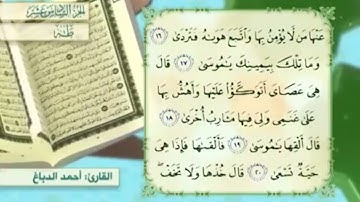 الجزء السادس عشر
طه
عَنْهَا مَن لَّا يُؤْمِنُ بِهَا وَاتَّبَعَ هَوَاهُ فَتَرْدَىٰ ١٦
وَمَا تِلْكَ بِيَمِينِكَ يَا مُوسَىٰ ١٧ قَالَ
هِيَ عَصَايَ أَتَوَكَّأُ عَلَيْهَا وَأَهُشُّ بِهَا
عَلَىٰ غَنَمِي وَلِيَ فِيهَا مَآرِبُ أُخْرَىٰ ١٨
قَالَ أَلْقِهَا يَا مُوسَىٰ ١٩ فَأَلْقَاهَا فَإِذَا هِيَ
حَيَّةٌ تَسْعَىٰ ٢٠ قَالَ خُذْهَا وَلَا تَخَفْ ۖ
القارئ: أحمد الدباغ